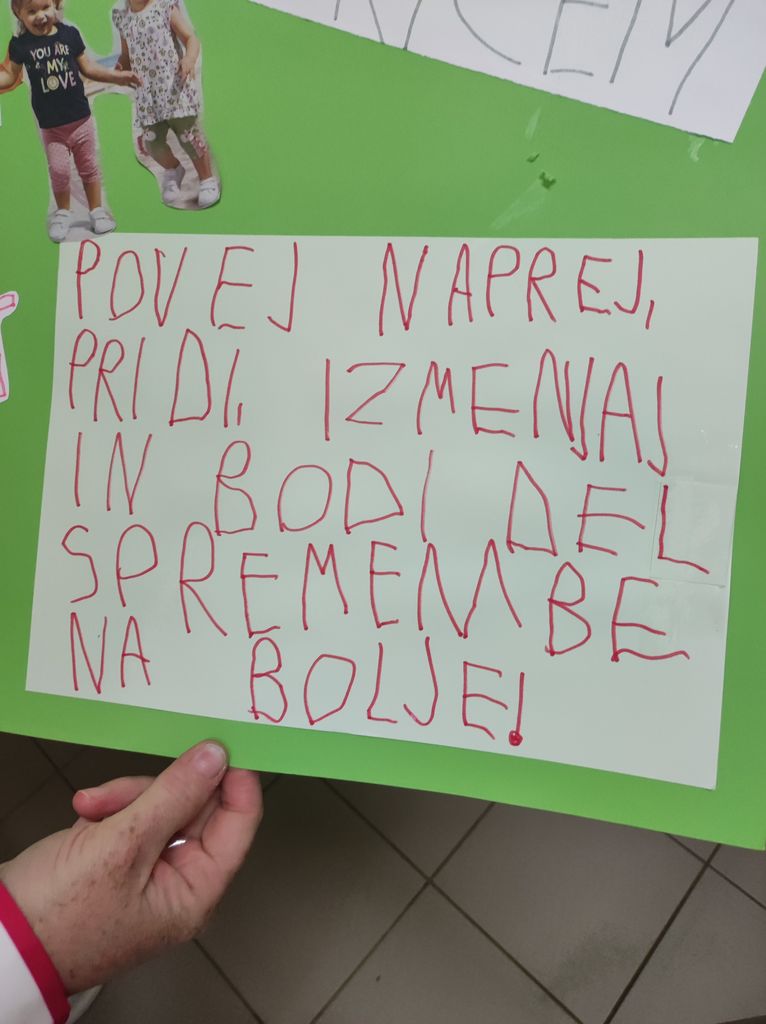 YOU ARE
MY
LOVE
POVEJ NAPREJ,
PRIDI, IZMENJAJ
IN BODI DEL
SPREMEMBE
NA BOLJE!